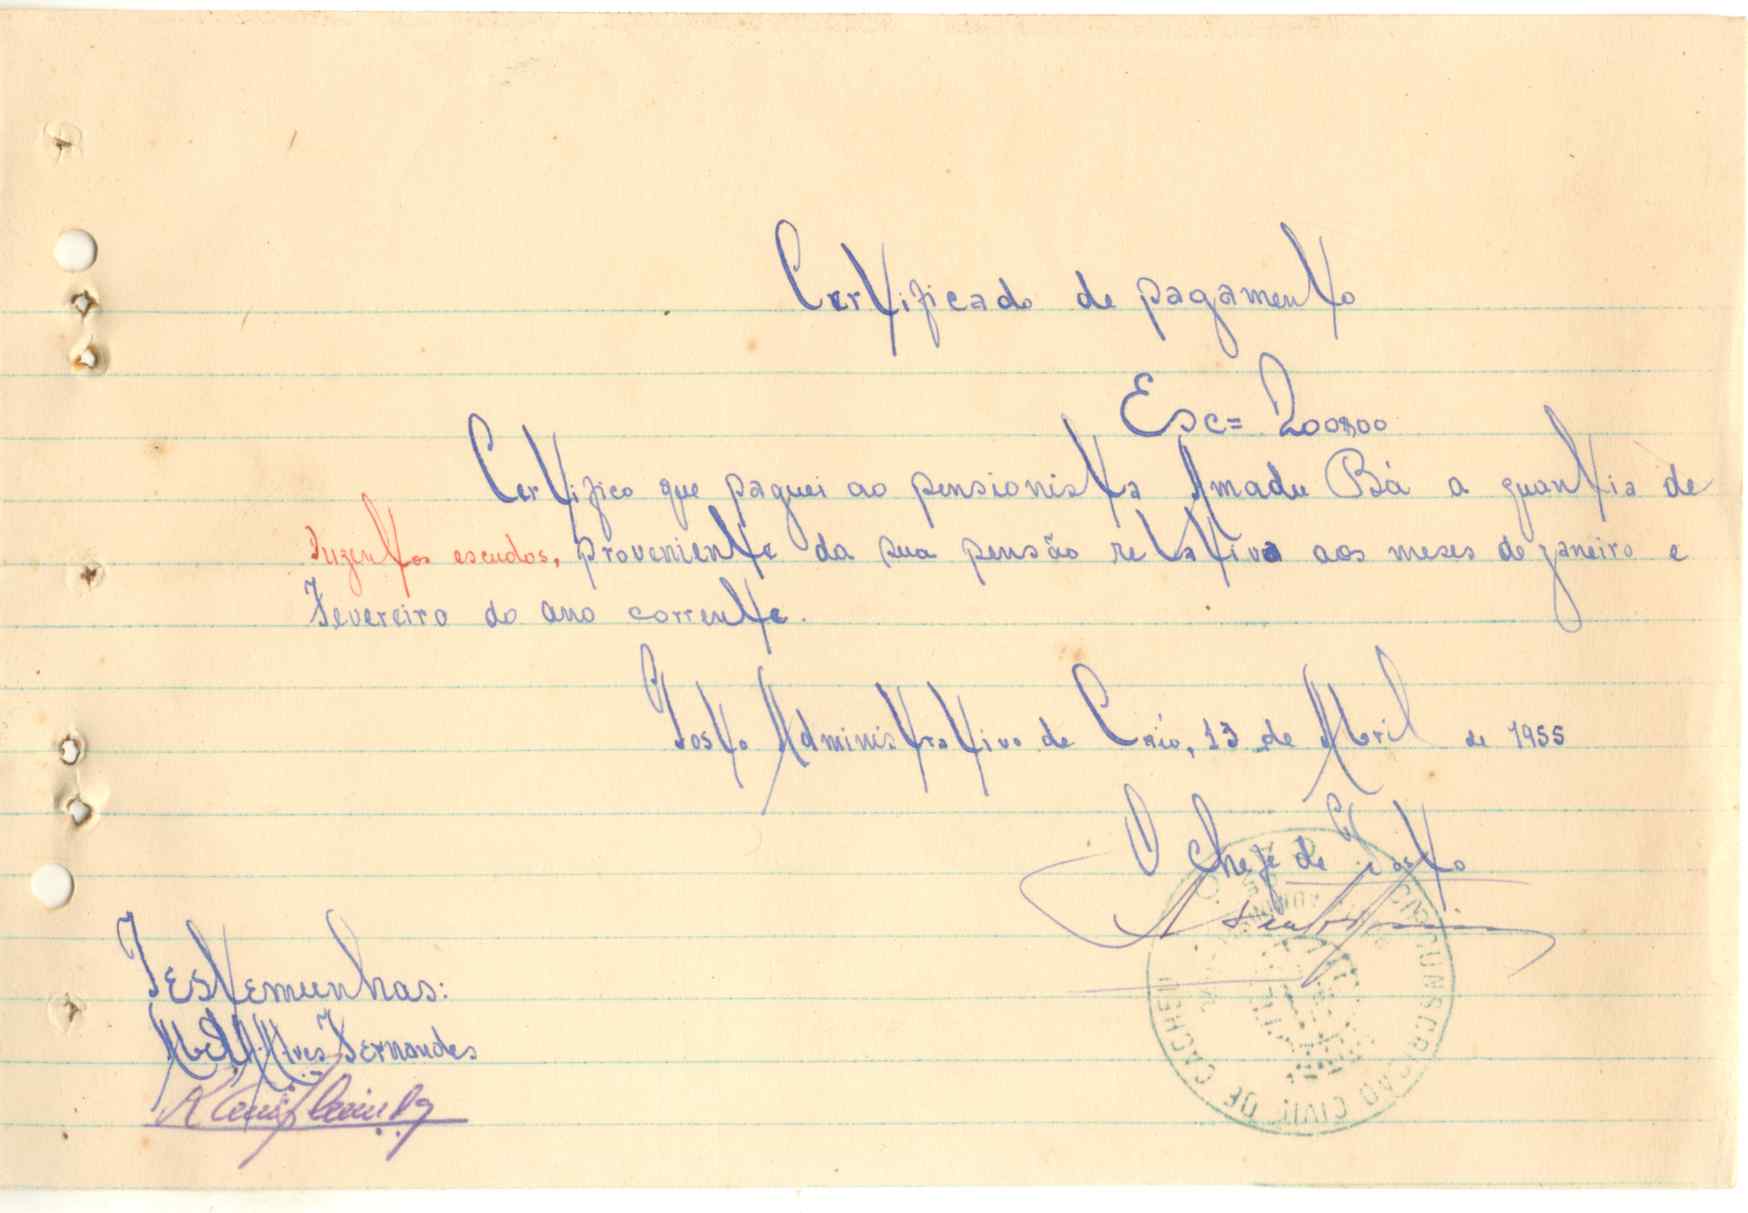 Certificado de pagamento
Esc= 200$00
Certifico que paguei ao pensionista Amadu Bá a quantia de
duzentos escudos, proveniente da sua pensão relativa aos meses de janeiro e
Fevereiro do ano corrente.
Posto Administrativo de Caió, 13 de Abril de 1955
O Chefe de Posto
CIRCUNSCRIÇÃO CIVIL DE CACHEU
Testemunhas:
Abel Alves Fernandes